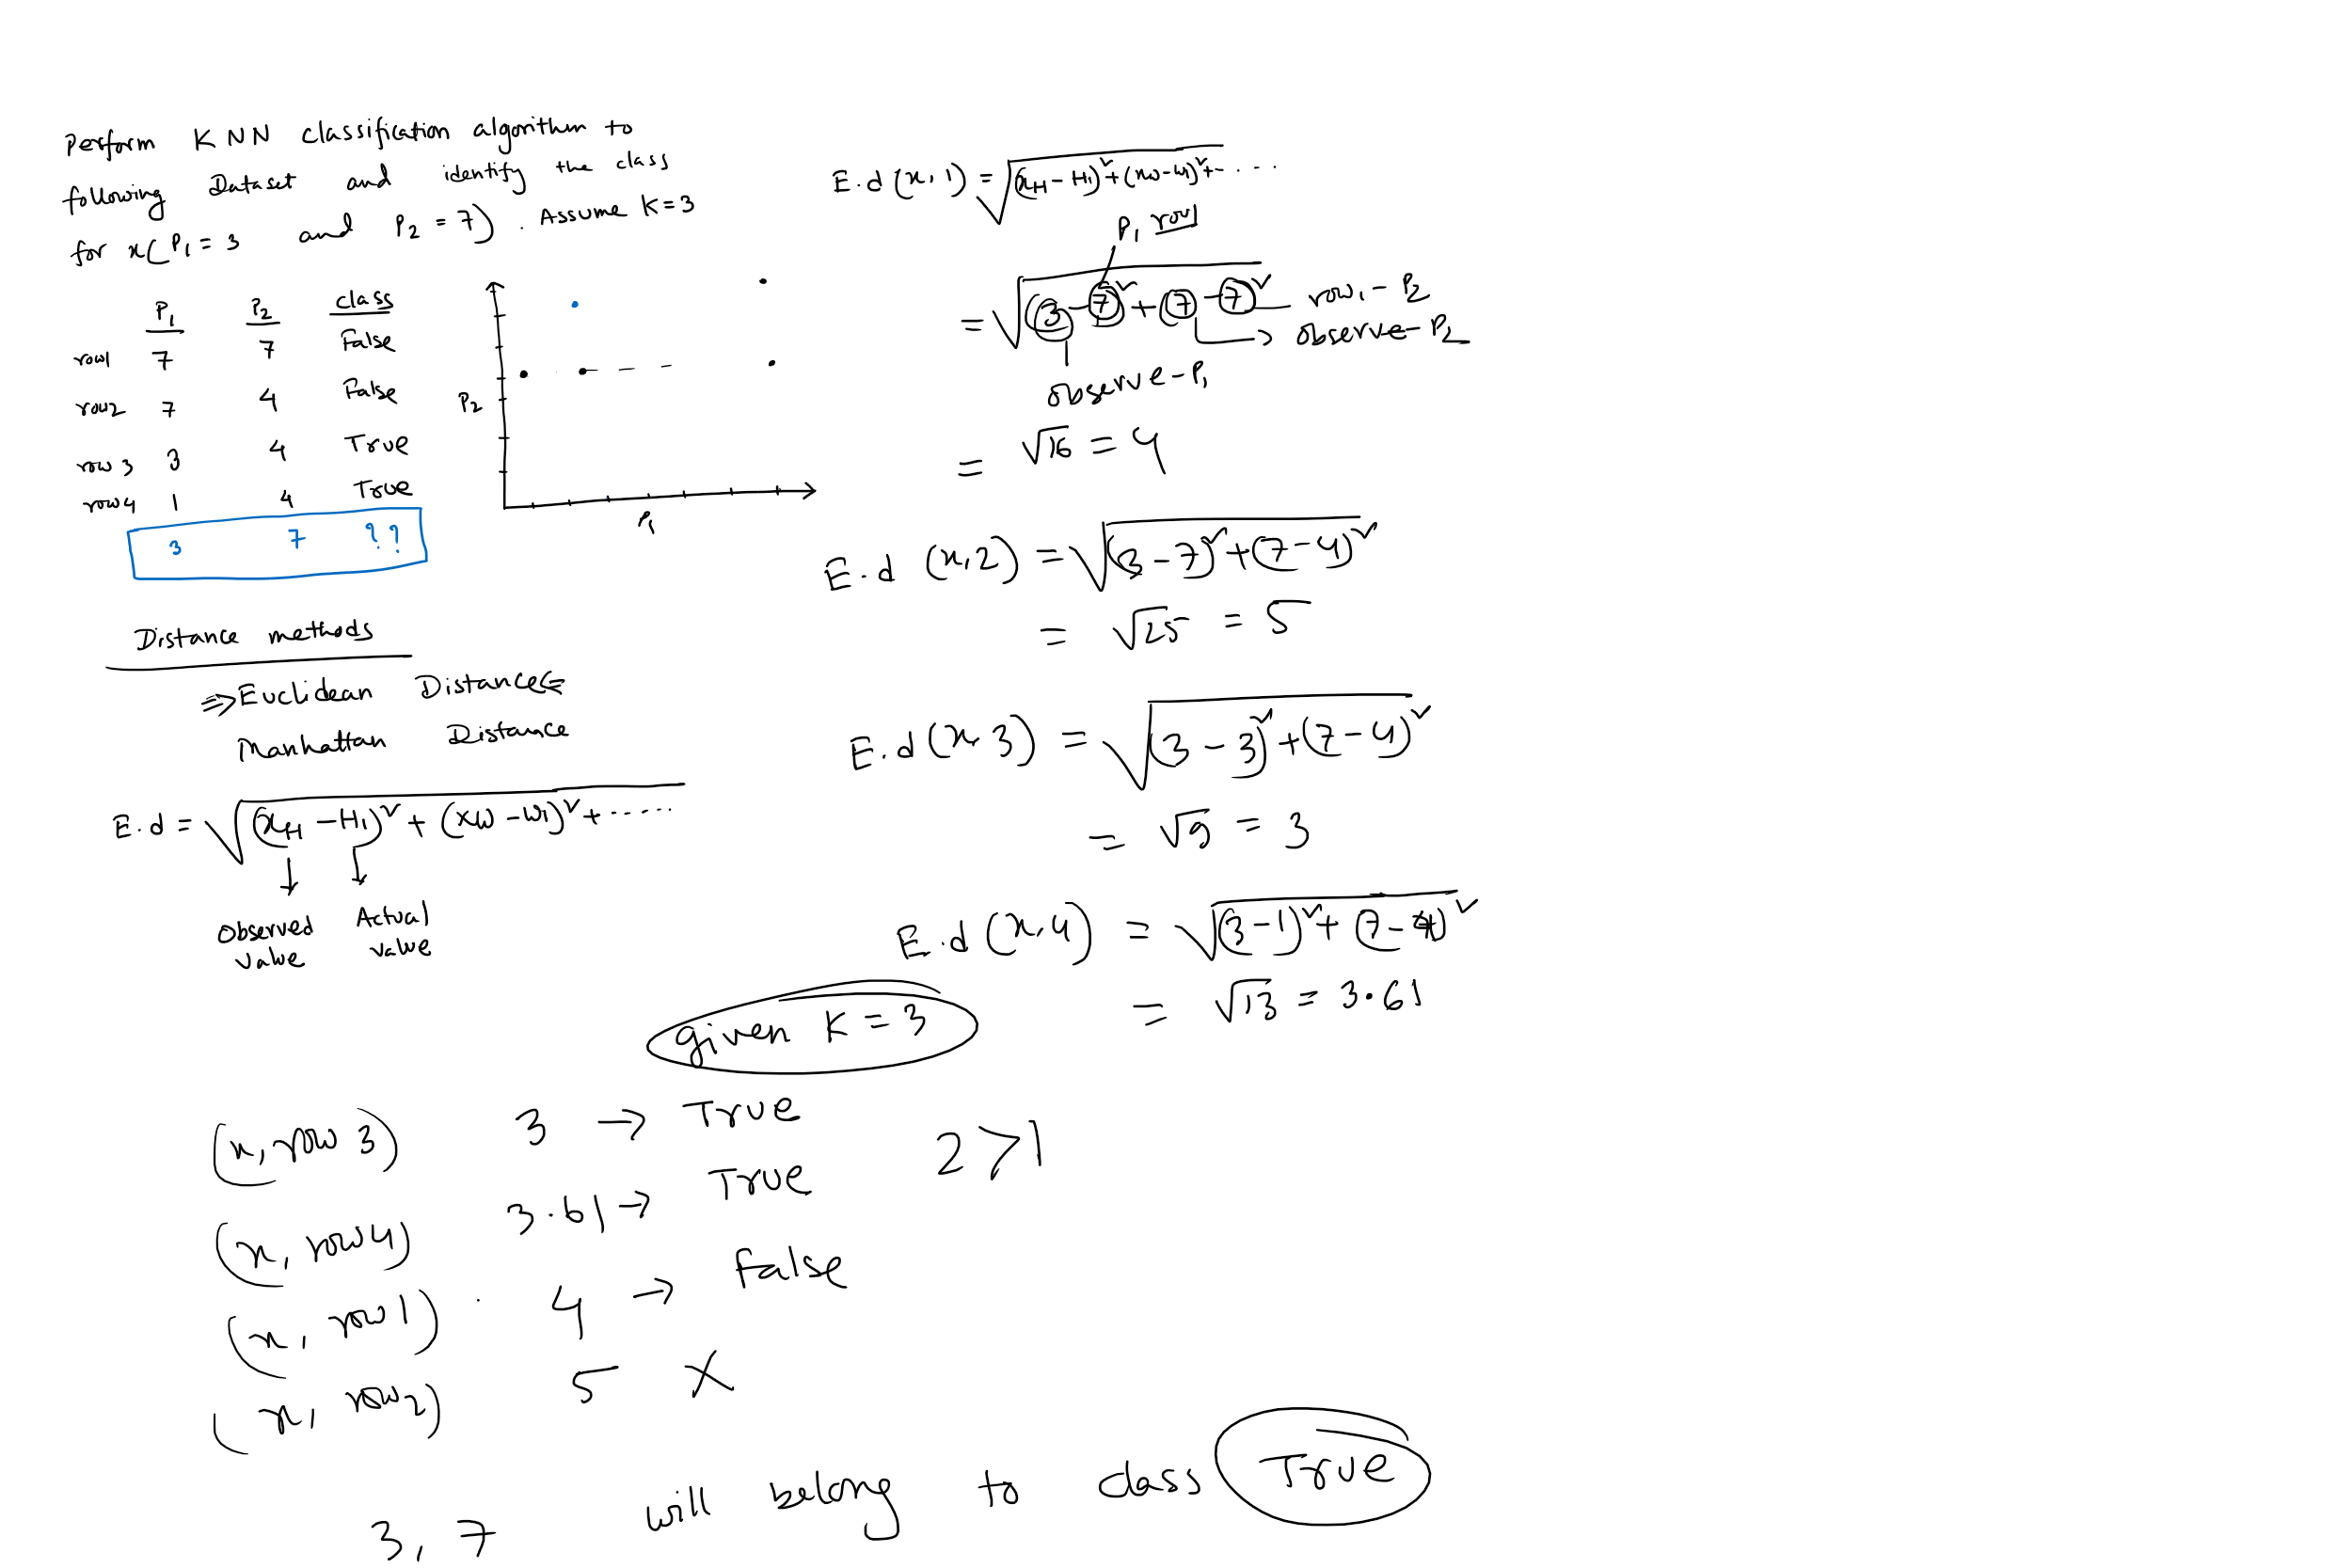 Perform KNN classification algorithm to
following Dataset and identify the class
for x(P₁ = 3 and P₂ = 7). Assume K=3
P₁ P₂ class
row1 7 7 False
row2 7 4 False
row3 3 4 True
row4 1 4 True
3 7 ??
P₂
P₁
Distance methods
⇒ Euclidean Distance ⇐
Manhattan Distance
E.d = √(xH - H₁)² + (xW - W₁)² + ......
Observed Actual
value value
E.d (x, 1) = √(xH - H₁)² + (xW - W₁)² + ....
P₁ row1
= √(3 - 7)² + (7 - 7)² row₁ - P₂
observe - P₂
observe - P₁
= √16 = 4
E.d (x, 2) = √(3 - 7)² + (7 - 4)²
= √25 = 5
E.d (x, 3) = √(3 - 3)² + (7 - 4)²
= √9 = 3
E.d (x, 4) = √(3 - 1)² + (7 - 4)²
= √13 = 3.61
given K = 3
(x, row 3) 3 → True
(x, row4) 3.61 → True 2 > 1
(x, row1) 4 → False
(x, row2) 5 X
3, 7 will belong to class True